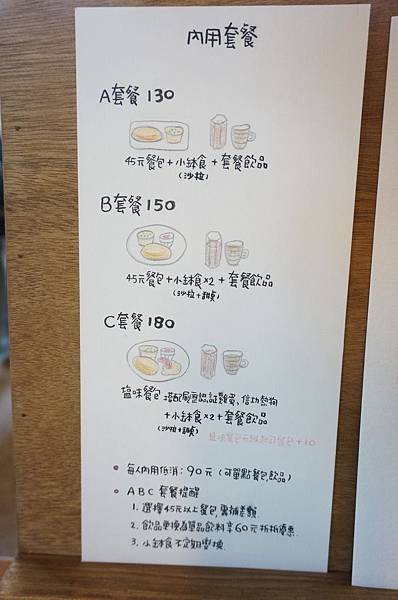 內用套餐
A套餐 130
45元餐包+小缽食+套餐飲品
(沙拉)
B套餐 150
45元餐包+小缽食×2+套餐飲品
(沙拉+甜品)
C套餐 180
鹽味餐包 搭配履歷認証雞蛋,信功熱狗
+小缽食×2+套餐飲品
(沙拉+甜品)
鹽味餐包 起司餐包+10
每人內用低消:90元 (可單點餐包,飲品)
ABC套餐提醒
1. 選擇45元以上餐包,需補差額.
2. 飲品更換為單品飲料享60元折抵優惠.
3. 小缽食不定期變換.